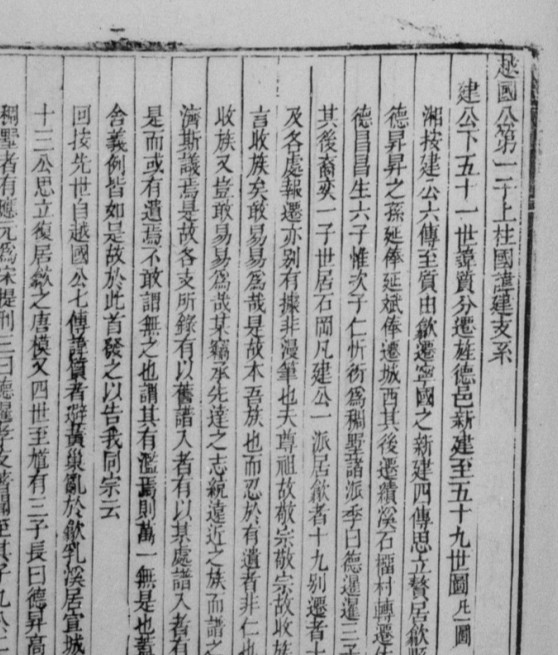 越國公第一子上柱國諱建支系
建公下五十一世諱質分遷旌德邑新建至五十九世圖凡一圖
湘按建公六傳至質由歙遷寧國之新建四傳思立贅居歙縣
德昇昇之孫延俸延斌俸遷城西其後遷績溪石榴村轉遷
德昌昌生六子惟次子仁忻衍為稠墅諸派季曰德暹暹三子
其後裔奕一子世居石岡凡建公一派居歙者十九別遷者
及各處報遷亦別有據非漫筆也夫尊祖故敬宗敬宗故收族
言收族矣敢易易為哉是故本吾族也而忍於有遺者非仁也
收族又豈敢易易為哉某竊承先達之志統遠近之族而譜之
濟斯議焉是故各支所錄有以舊譜入者有以某處譜入者有
是而或有遺焉不敢謂無之也謂其有濫焉則萬一無是也蓋
舍義例皆如是故於此首發之以告我同宗云
回按先世自越國公七傳諱質者避黃巢亂於歙乳溪居宣城
十三公思立復居歙之唐模又四世至馗有三子長曰德昇高
稠墅者有應元為宋提刑三曰德暹